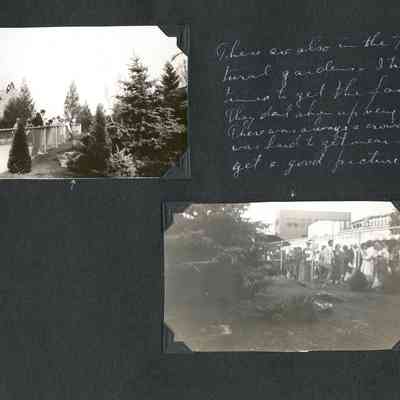 These are also in the
tural gardens. I
times to get the
They dont show up very
There was always a crowd
was hard to get near
get a good picture